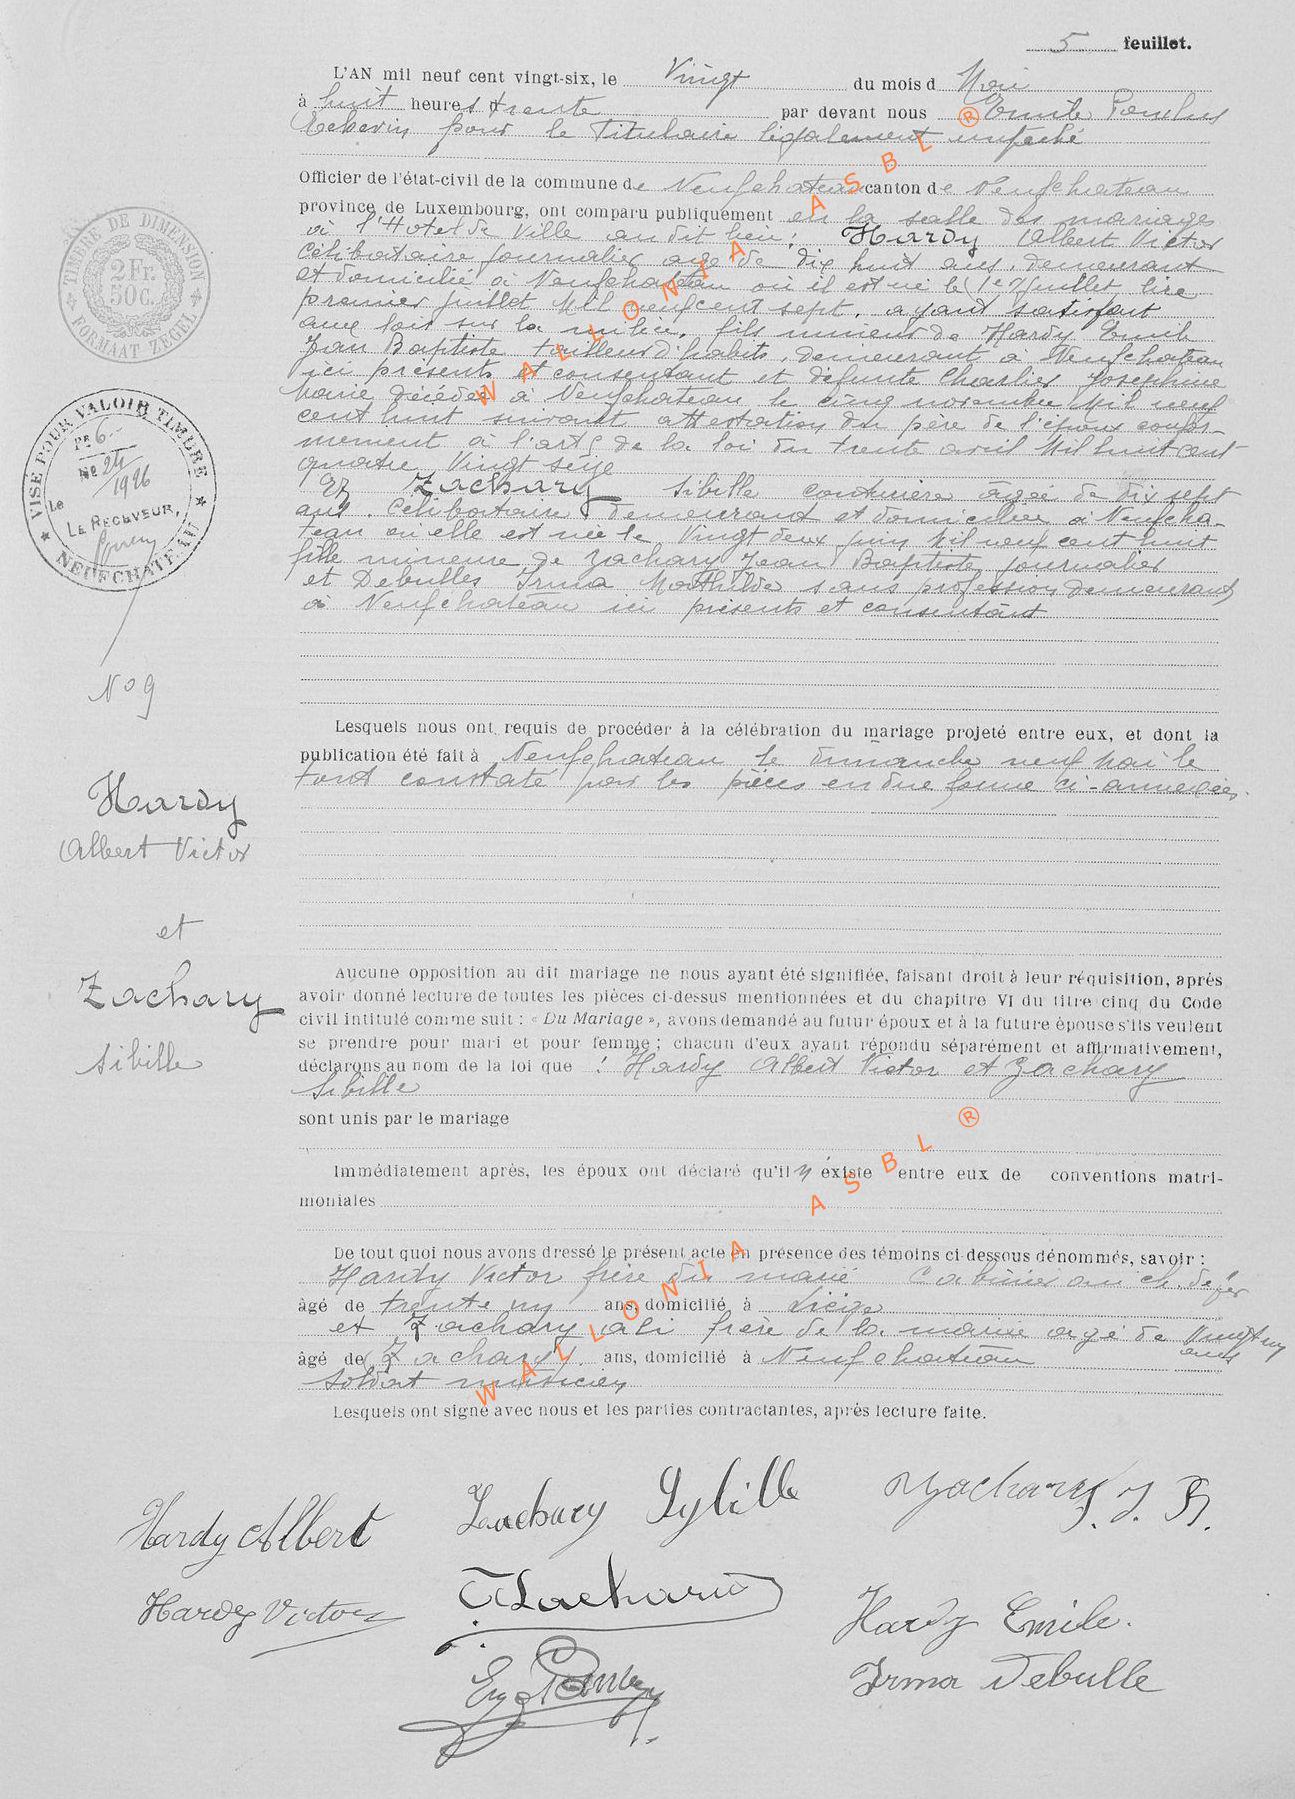 5 feuillet.
L'AN mil neuf cent vingt-six, le Vingt du mois d Mai
à huit heures trente par devant nous Emile
Echevin pour le Titulaire légalement empeché
Officier de l'état-civil de la commune de Neufchateau canton de Neufchateau
province de Luxembourg, ont comparu publiquement en la salle des mariages
à l'Hotel de Ville au dit lieu: Hardy Albert Victor
célibataire journalier age de dix huit ans, demeurant
et domicilié à Neufchateau où il est né le 1e Juillet lire
premier juillet Mil neufcent sept, ayant satisfait
aux lois sur la milice, fils mineur de Hardy Emile
Jean Baptiste tailleur d'habits, demeurant à Neufchateau
ici présent et consentant et défunte Charlier Josephine
Marie décédée à Neufchateau le cinq novembre Mil neuf
cent huit suivant attestation du père de l'époux confor-
mement à l'art 6 de la loi du trente avril Mil huit cent
quatre Vingt seize
Et Zachary Sibille couturière agée de dix sept
ans, Celibataire demeurant et domiciliée à Neufcha-
teau ou elle est née le Vingt deux juin Mil neuf cent huit
fille mineure de Zachary Jean Baptiste journalier
et Debulles Irma Mathilde sans profession demeurant
à Neufchateau ici présents et consentant
Lesquels nous ont requis de procéder à la célébration du mariage projeté entre eux, et dont la
publication été fait à Neufchateau le dimanche neuf Mai le
tout constaté par les pièces en due forme ci-annexées.
Aucune opposition au dit mariage ne nous ayant été signifiée, faisant droit à leur réquisition, après
avoir donné lecture de toutes les pièces ci-dessus mentionnées et du chapitre VI du titre cinq du Code
civil intitulé comme suit : « Du Mariage », avons demandé au futur époux et à la future épouse s'ils veulent
se prendre pour mari et pour femme ; chacun d'eux ayant répondu séparément et affirmativement,
déclarons au nom de la loi que : Hardy Albert Victor et Zachary
Sibille
sont unis par le mariage
Immédiatement après, les époux ont déclaré qu'il n'existe entre eux de conventions matri-
moniales
De tout quoi nous avons dressé le présent acte en présence des témoins ci-dessous dénommés, savoir :
Hardy Victor frère du marié au ch. de fer
âgé de trente un ans, domicilié à Liège
et Zachary Ali frère de la mariée agé de Vingt un
ans
âgé de Zachary ans, domicilié à Neufchateau
Soldat musicien
Lesquels ont signé avec nous et les parties contractantes, après lecture faite.
Hardy Albert
Zachary Sybille
Zachary J. B.
Hardy Victor
Hardy Emile.
Irma Debulle
TIMBRE DE DIMENSION
2 Fr.
50 c.
FORMAAT ZEGEL
VISÉ POUR VALOIR TIMBRE
Pr 6.-
No 24
1926
Le
LE RECEVEUR,
NEUFCHATEAU
No 9
Hardy
Albert Victor
et
Zachary
Sibille
WALLONIA ASBL ®
WALLONIA ASBL ®